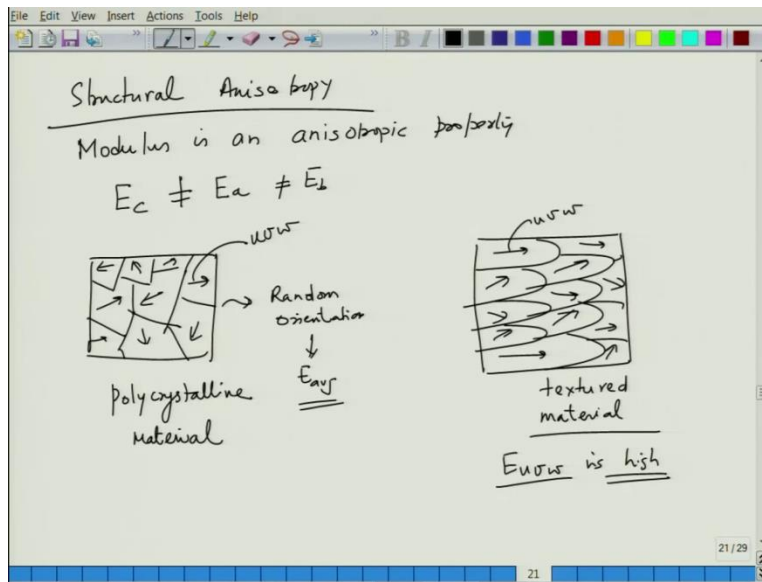 File Edit View Insert Actions Tools Help
Structural Anisotropy
Modulus is an anisotropic property
Ec ≠ Ea ≠ Eb
uvw
Random
orientation
↓
Eavg
polycrystalline
Material
uvw
textured
material
Euvw is high
21 / 29
21